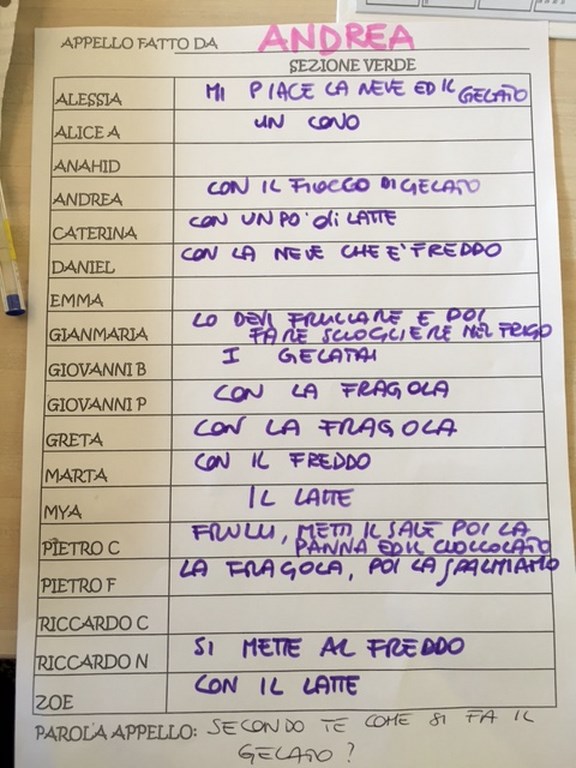 APPELLO FATTO DA ANDREA
SEZIONE VERDE
ALESSIA MI PIACE LA NEVE ED IL GELATO
ALICE A UN CONO
ANAHID
ANDREA CON IL FIOCCO DI GELATO
CATERINA CON UN PO' di LATTE
DANIEL CON LA NEVE CHE E' FREDDO
EMMA
GIANMARIA LO DEVI FRULLARE E POI
FARE SCIOGLIERE NEL FRIGO
GIOVANNI B I GELATAI
GIOVANNI P CON LA FRAGOLA
GRETA CON LA FRAGOLA
MARTA CON IL FREDDO
MYA IL LATTE
PIETRO C FRULLI, METTI IL SALE POI LA
PANNA ED IL CIOCCOLATO
PIETRO F LA FRAGOLA, POI LA SPALMIAMO
RICCARDO C
RICCARDO N SI METTE AL FREDDO
ZOE CON IL LATTE
PAROLA APPELLO: SECONDO TE COME SI FA IL
GELATO?